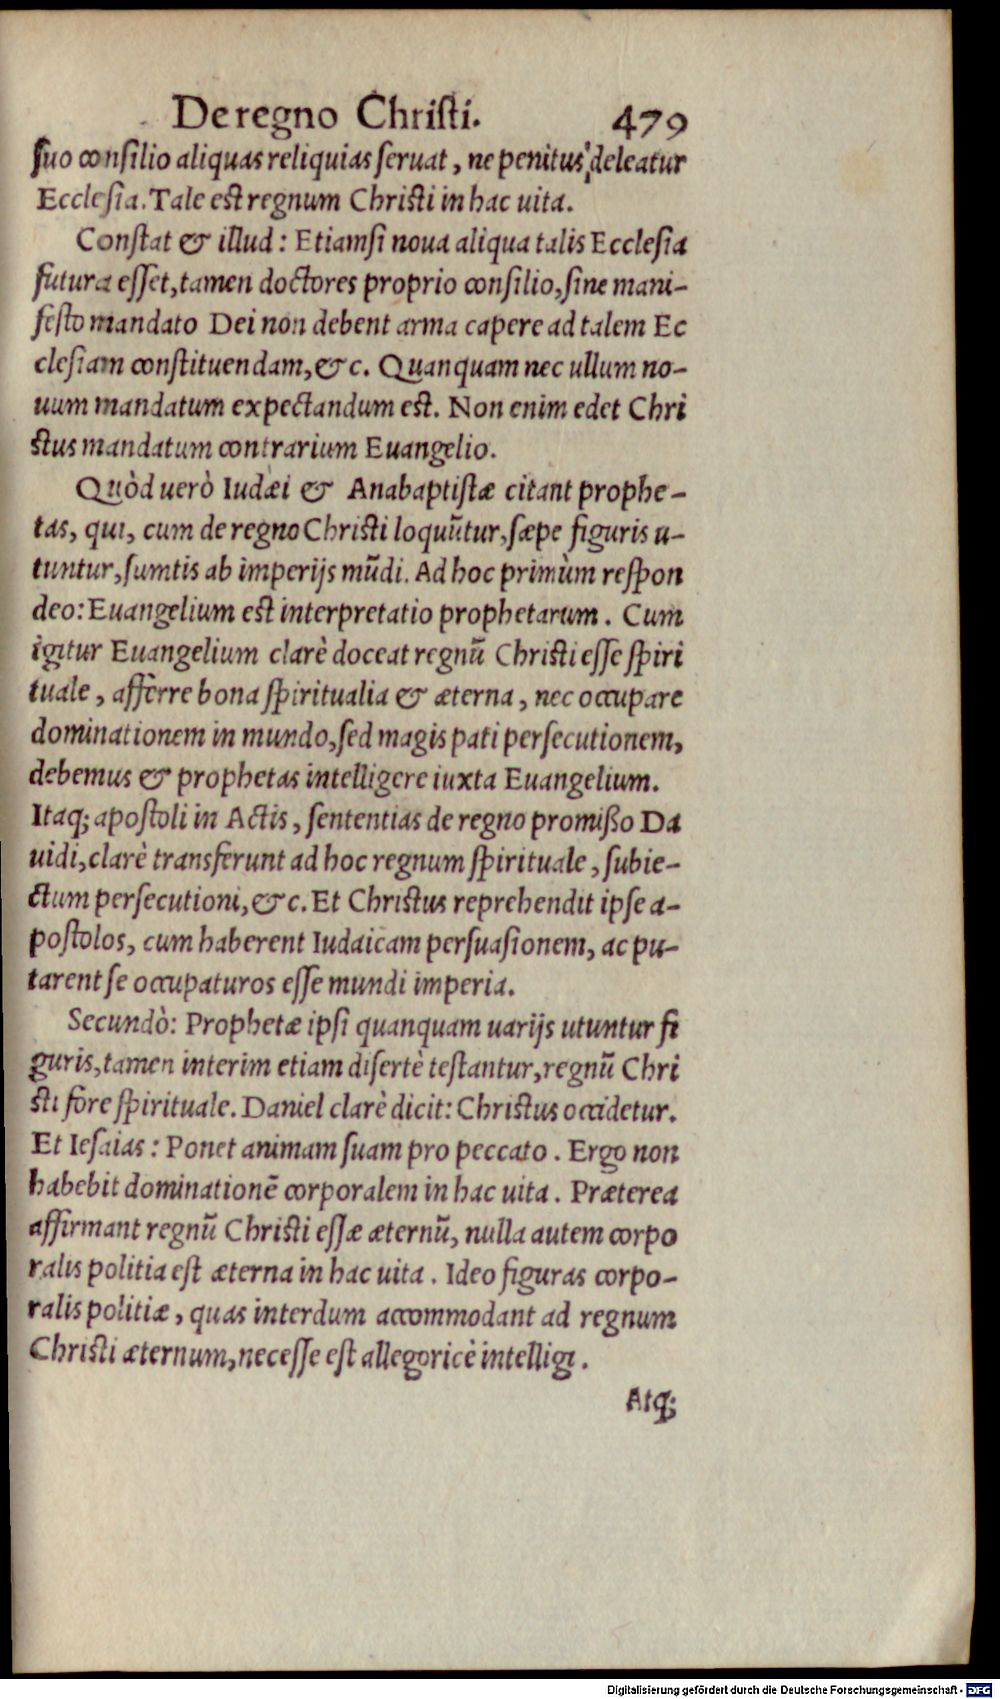 De regno Christi. 479
suo consilio aliquas reliquias seruat, ne penitus deleatur
Ecclesia. Tale est regnum Christi in hac uita.
Constat & illud: Etiamsi noua aliqua talis Ecclesia
futura esset, tamen doctores proprio consilio, sine mani-
festo mandato Dei non debent arma capere ad talem Ec
clesiam constituendam, &c. Quanquam nec ullum no-
uum mandatum expectandum est. Non enim edet Chri
stus mandatum contrarium Euangelio.
Quòd uerò Iudæi & Anabaptistæ citant prophe-
tas, qui, cum de regno Christi loquũtur, sæpe figuris u-
tuntur, sumtis ab imperijs mũdi. Ad hoc primùm respon
deo: Euangelium est interpretatio prophetarum. Cum
igitur Euangelium clarè doceat regnũ Christi esse spiri
tuale, afferre bona spiritualia & æterna, nec occupare
dominationem in mundo, sed magis pati persecutionem,
debemus & prophetas intelligere iuxta Euangelium.
Itaq; apostoli in Actis, sententias de regno promißo Da
uidi, clarè transferunt ad hoc regnum spirituale, subie-
ctum persecutioni, &c. Et Christus reprehendit ipse a-
postolos, cum haberent Iudaicam persuasionem, ac pu-
tarent se occupaturos esse mundi imperia.
Secundò: Prophetæ ipsi quanquam uarijs utuntur fi
guris, tamen interim etiam disertè testantur, regnũ Chri
sti fore spirituale. Daniel clarè dicit: Christus occidetur.
Et Iesaias: Ponet animam suam pro peccato. Ergo non
habebit dominationẽ corporalem in hac uita. Præterea
affirmant regnũ Christi essæ æternũ, nulla autem corpo
ralis politia est æterna in hac uita. Ideo figuras corpo-
ralis politiæ, quas interdum accommodant ad regnum
Christi æternum, necesse est allegoricè intelligi.
Atq;
Digitalisierung gefördert durch die Deutsche Forschungsgemeinschaft - DFG